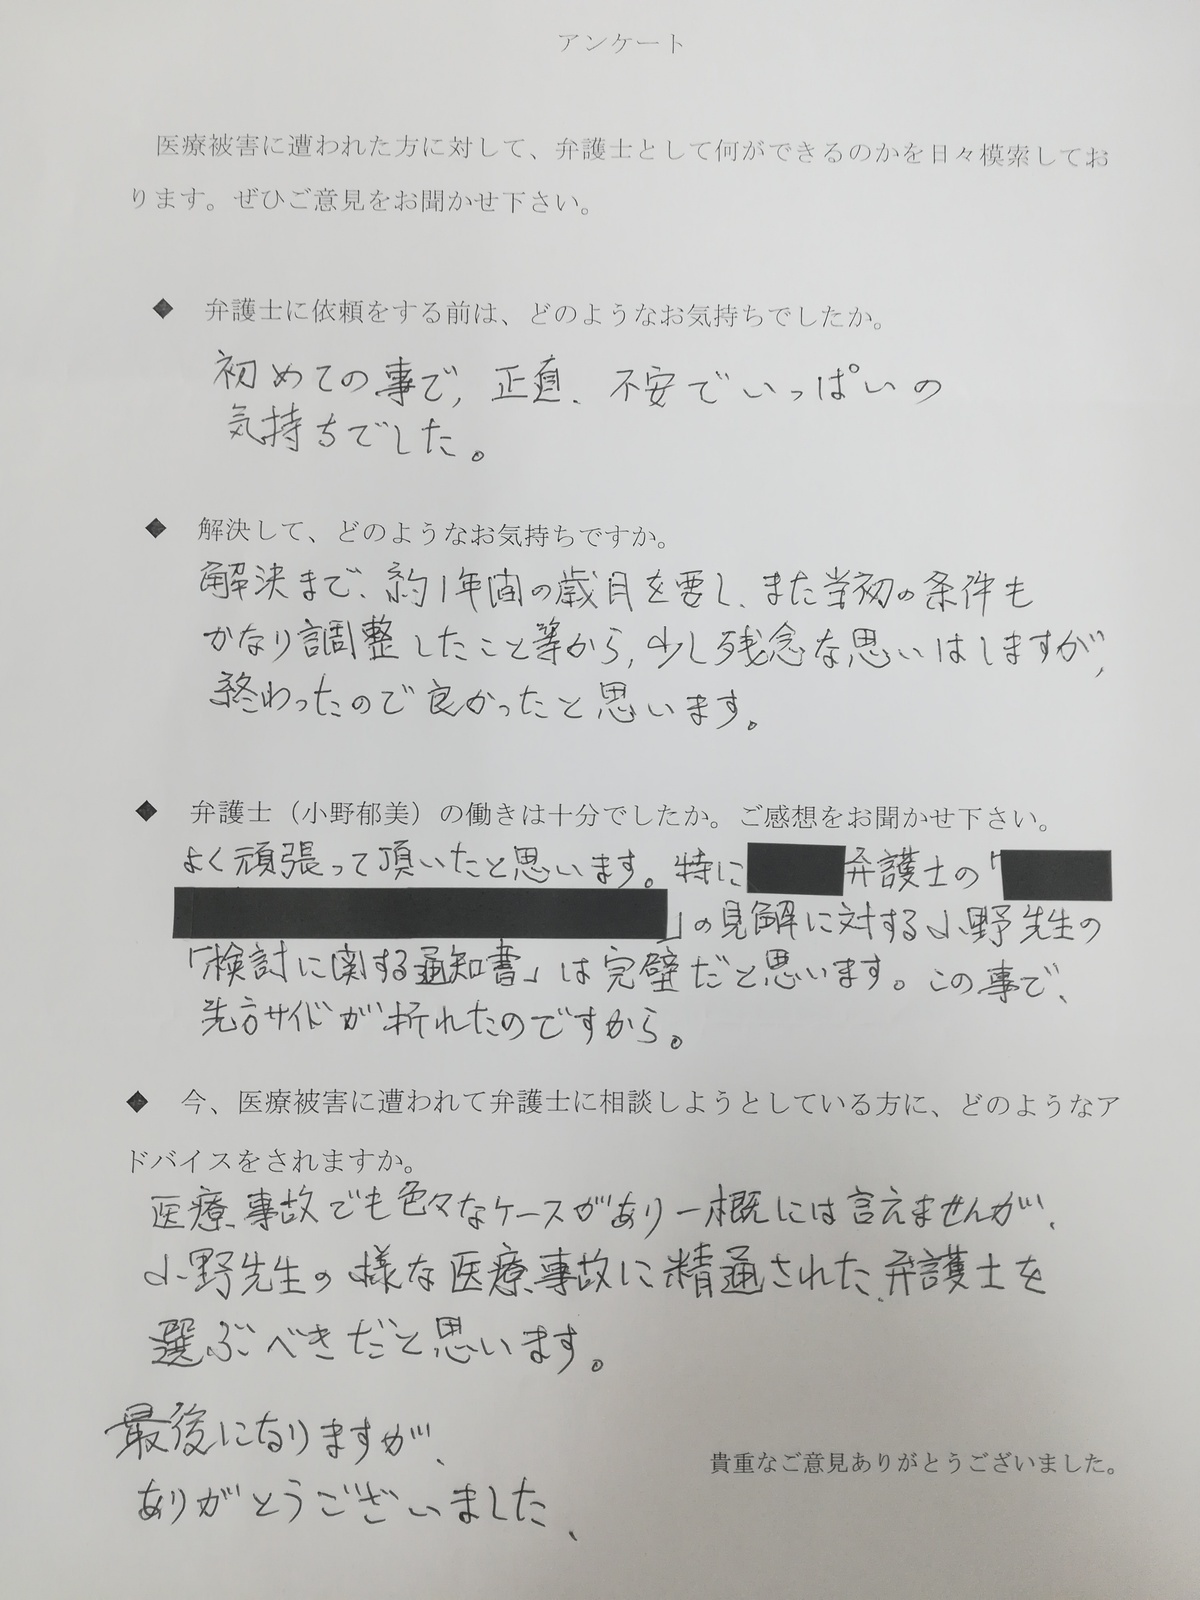 アンケート
医療被害に遭われた方に対して、弁護士として何ができるのかを日々模索してお
ります。ぜひご意見をお聞かせ下さい。
◆ 弁護士に依頼をする前は、どのようなお気持ちでしたか。
初めての事で, 正直、不安でいっぱいの
気持ちでした。
◆ 解決して、どのようなお気持ちですか。
解決まで、約1年間の歳月を要し、また当初の条件も
かなり調整したこと等から, 少し残念な思いはしますが,
終わったので良かったと思います。
◆ 弁護士（小野郁美）の働きは十分でしたか。ご感想をお聞かせ下さい。
よく頑張って頂いたと思います。特に 弁護士の「
」の見解に対する小野先生の
「検討に関する通知書」は完璧だと思います。この事で、
先方サイドが折れたのですから。
◆ 今、医療被害に遭われて弁護士に相談しようとしている方に、どのようなア
ドバイスをされますか。
医療事故でも色々なケースがあり一概には言えませんが、
小野先生の様な医療事故に精通された弁護士を
選ぶべきだと思います。
最後になりますが、
貴重なご意見ありがとうございました。
ありがとうございました、